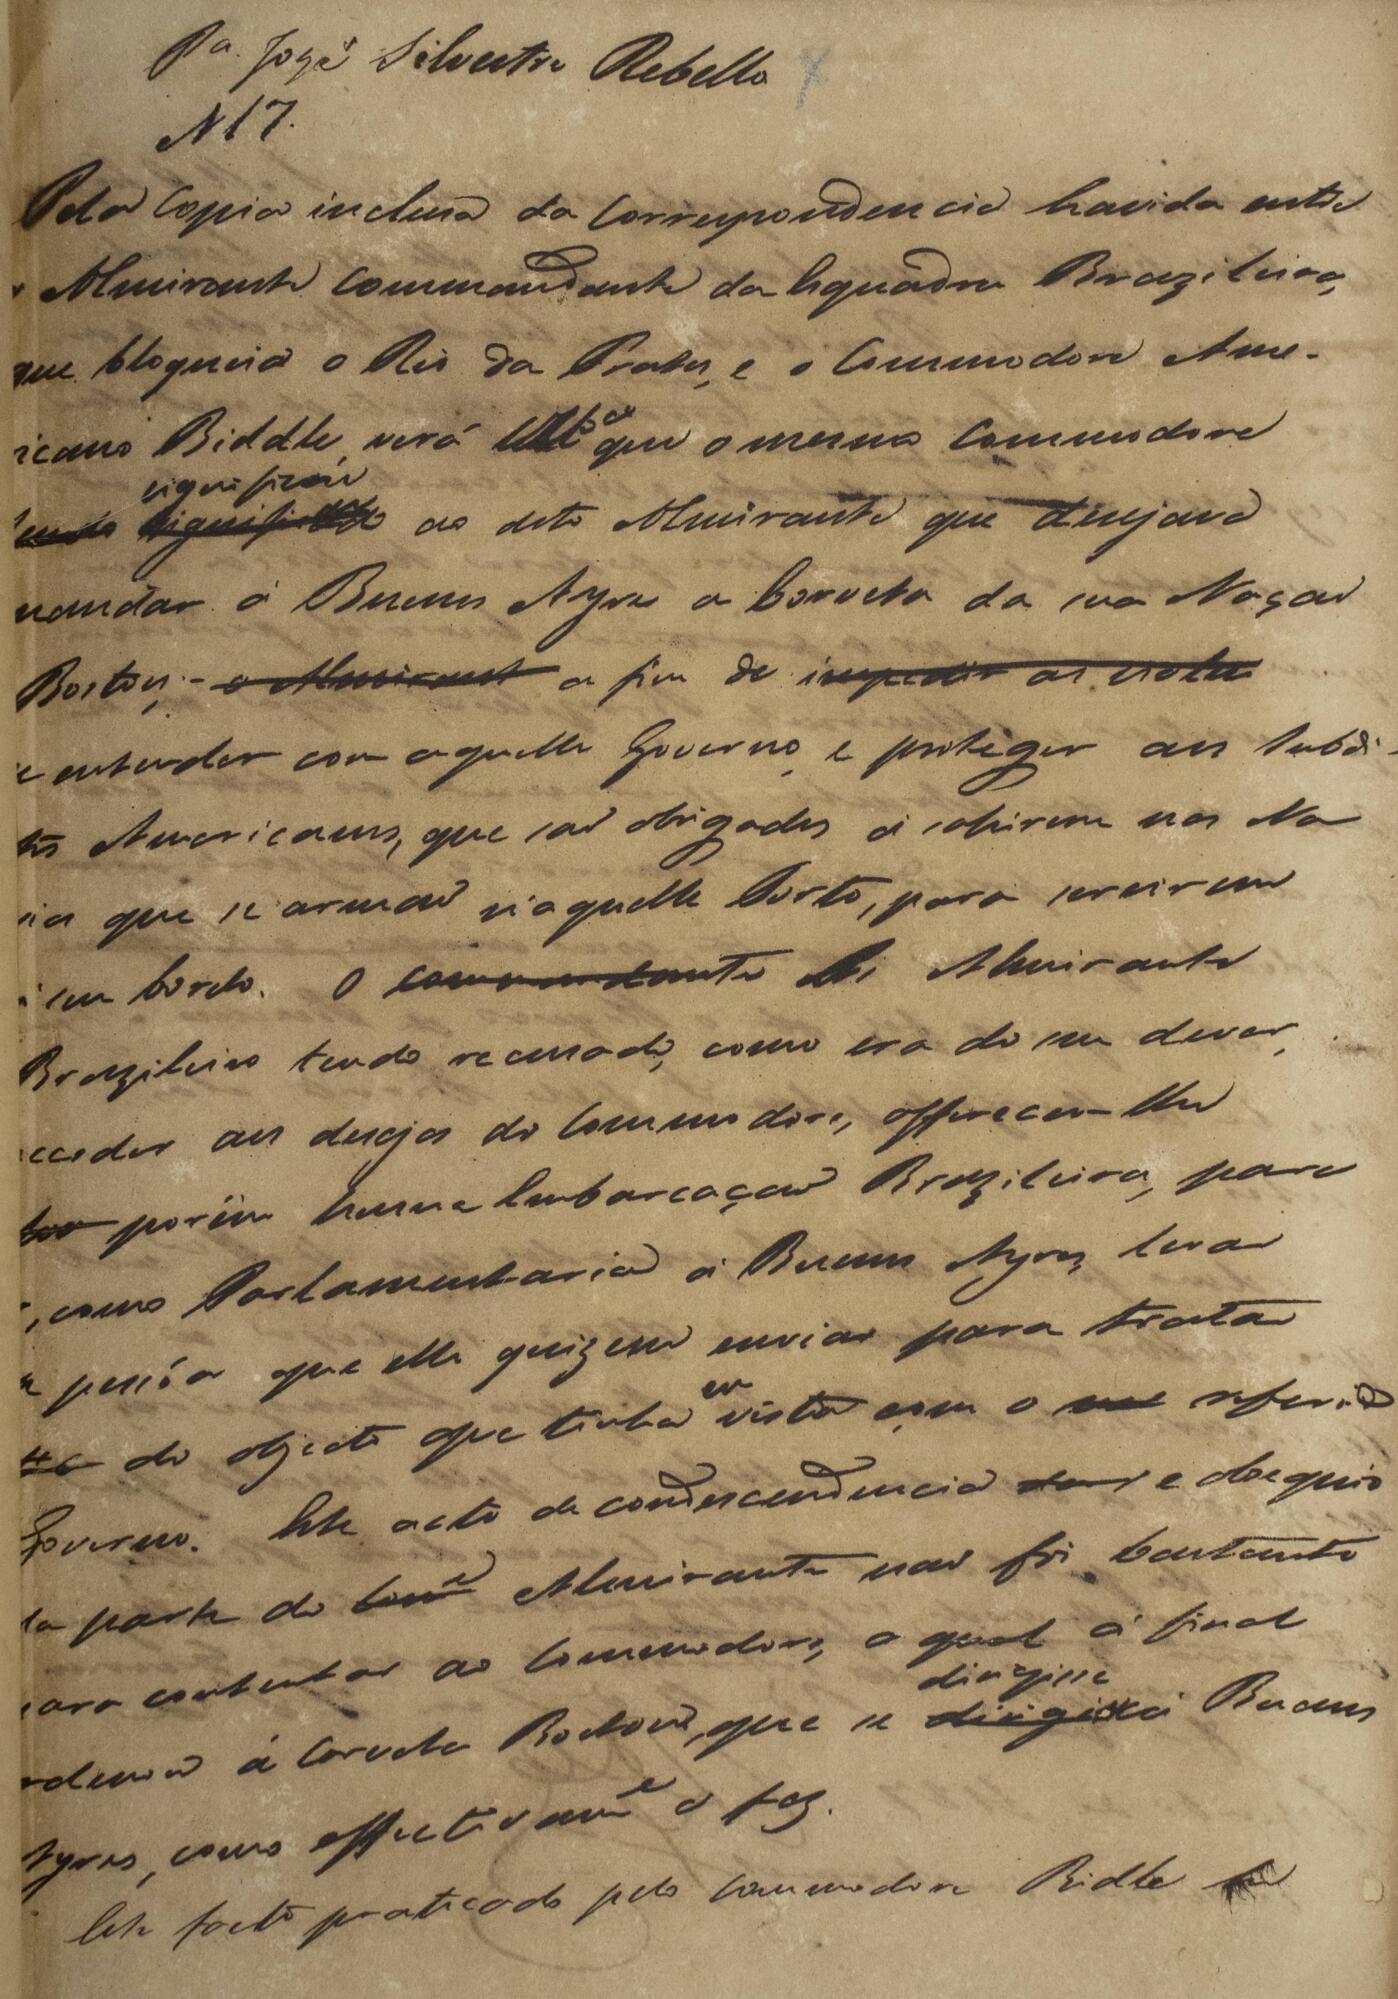 Pa. José Silvestre Rebello
N 17.
Pela Copia inclusa da Correspondencia havida entre
o Almirante Commandante da Esquadra Brazileira,
que bloqueia o Rio da Prata, e o Commodore Ame-
ricano Biddle, verá que o mesmo Commodore
significou
tendo significado ao dito Almirante que desejava
mandar á Buenos Ayres a Corveta da sua Naçaõ
Boston, - o Almirant a fim de impedir as viole
se entender com aquelle Governo, e proteger aos Subdi-
tos Americanos, que saõ obrigados á sahirem nos Na
vios que se armaõ n'aquelle Porto, para servirem
á seu bordo. O Commandante Almirante
Brazileiro tendo recusado, como era do seu dever,
acceder aos desejos do Commodore, offereceu-lhe
porém huma Embarcaçaõ Brazileira, para
, como Parlamentaria á Buenos Ayres levar
a pessôa que elle quizesse enviar para tratar
do objecto que tinha em vista com o referido
Governo. Este acto de condescendencia e obsequio
da parte do Almirante naõ foi bastante
para contentar ao Commodore, o qual á final
dirigisse
ordenou á Corveta Boston, que se dirigisse á Buenos
Ayres, como effectivame o fez.
Este facto praticado pelo Commodore Bidle